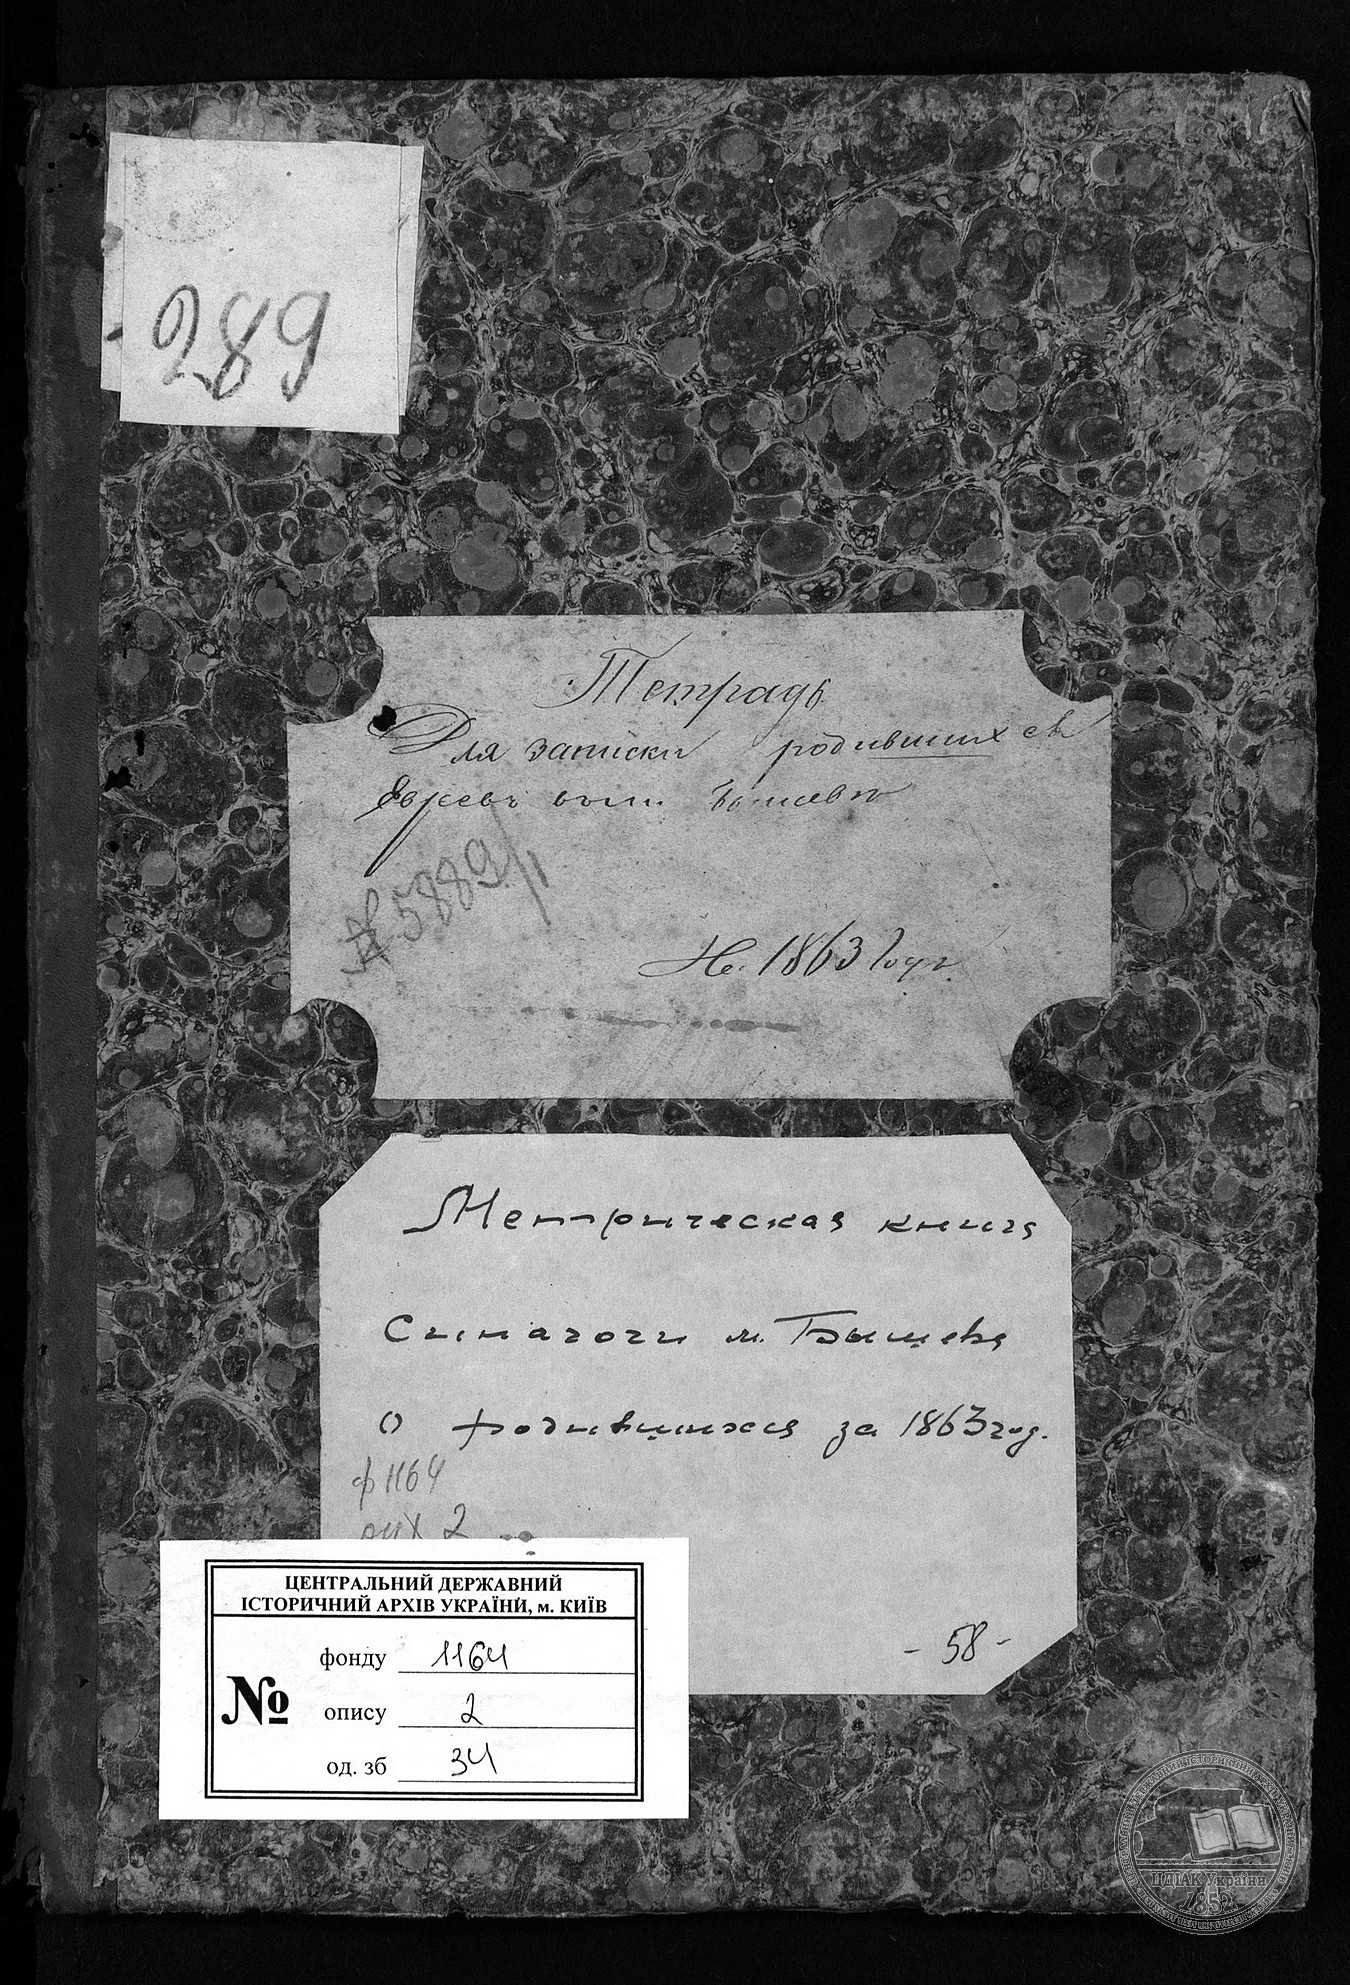 289
Тетрадь
Для записки родившихся
Евреевъ
№ 5889/1
На 1863 Годъ
Метрическая книга
Синагоги м. Бышева
о родившихся за 1863 год.
ф 1164
2
- 58 -
ЦЕНТРАЛЬНИЙ ДЕРЖАВНИЙ
ІСТОРИЧНИЙ АРХІВ УКРАЇНИ, м. КИЇВ
№
фонду 1164
опису 2
од. зб 34
ЦДІАК України
1852